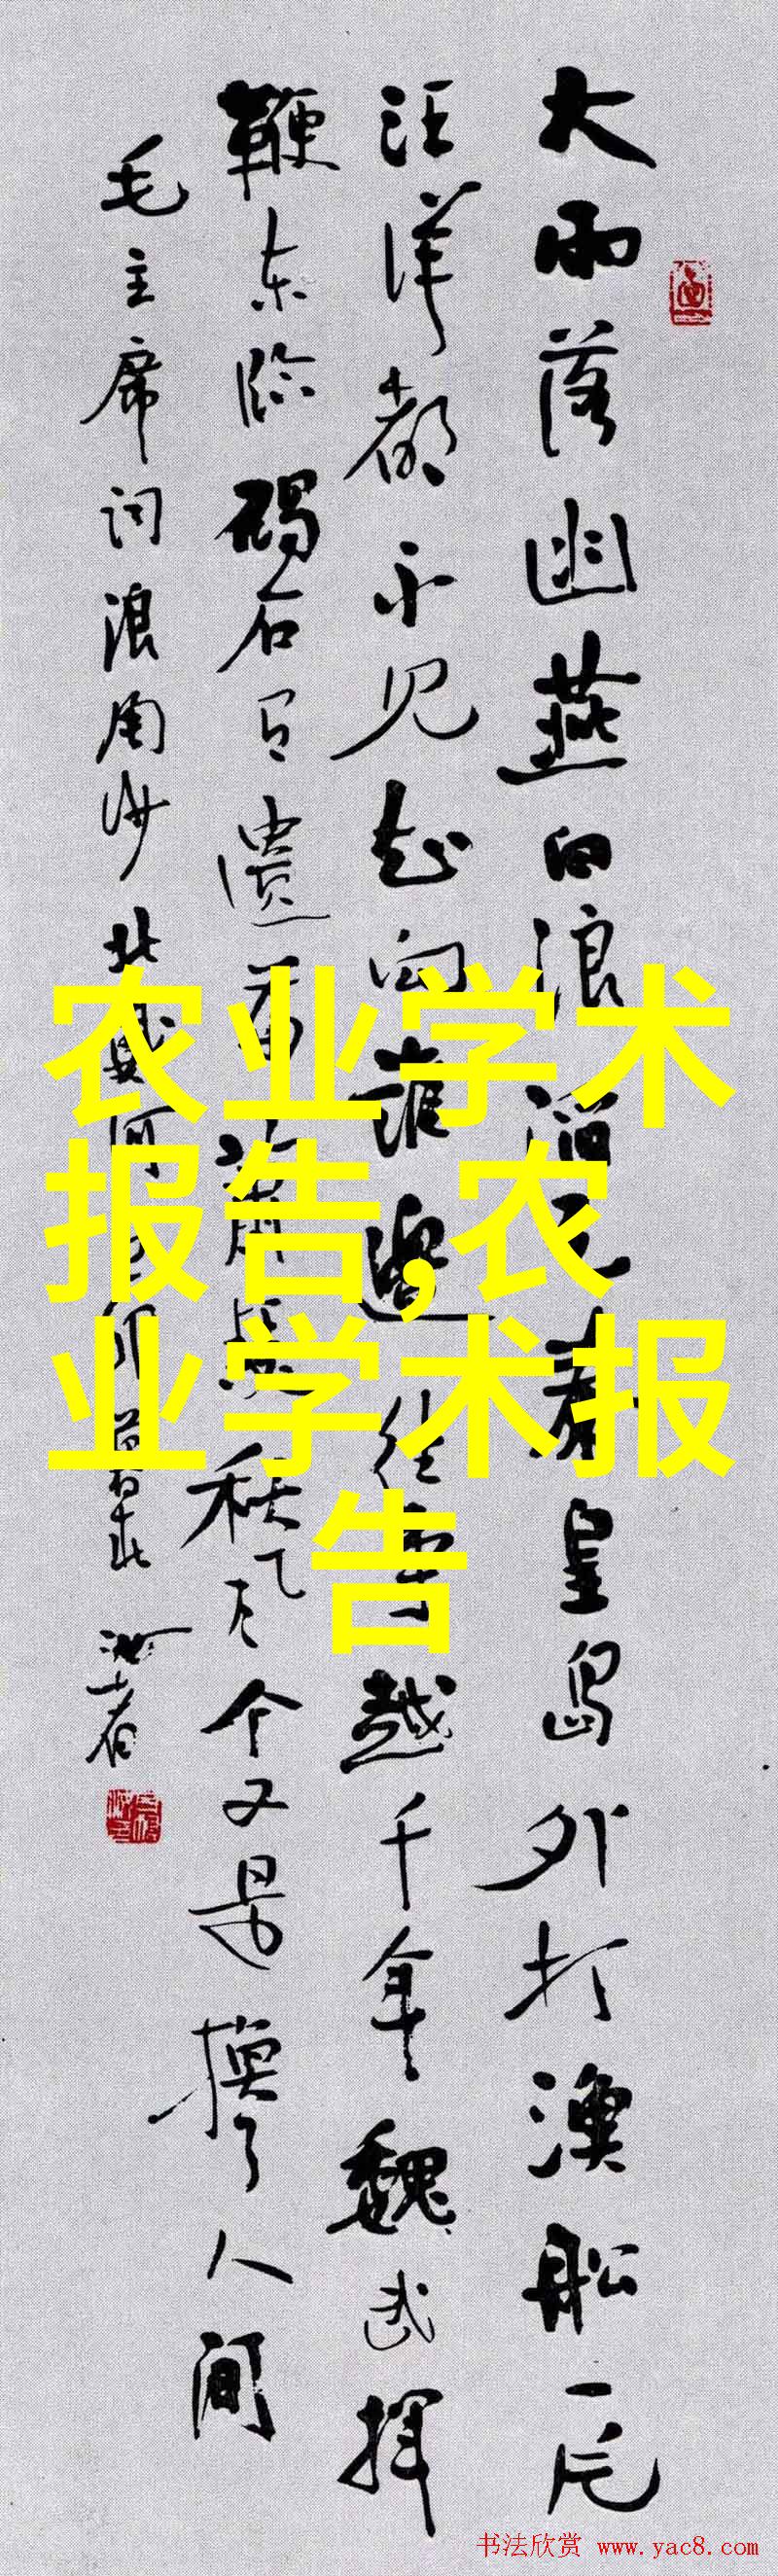 大雨落幽燕白浪滔天秦皇島外打漁船一片
汪洋都不见知向谁邊往事越千年魏武揮
鞭东临碣石有遺篇萧瑟秋风今又是換了人间
毛主席词浪淘沙北戴河
农业学术
报告,农
业学术报
告
书法欣赏 www.yac8.com